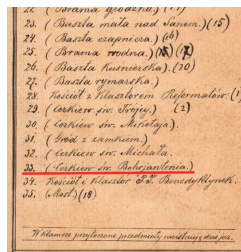 22. (Brama grodzka) (17)
23. (Baszta mała nad Sanem.) (15)
24. (Baszta czapnicza.) (16)
25. (Brama wodna.)
26. (Baszta kuśnierska.) (20)
27. (Baszta rymarska.)
28. Kościół z klasztorem Reformatów.
29. (Cerkiew św. Trójcy.) (2)
30. (Cerkiew św. Mikołaja.)
31. (Gród z zamkiem.)
32. (Cerkiew św. Michała.
33. (Cerkiew św. Bohojawlenia.)
34. Kościół i klasztor P.P. Benedyktynek.
35. (Most.) (18)
W klamrze przytoczone przedmioty nie istnieją dziś już.